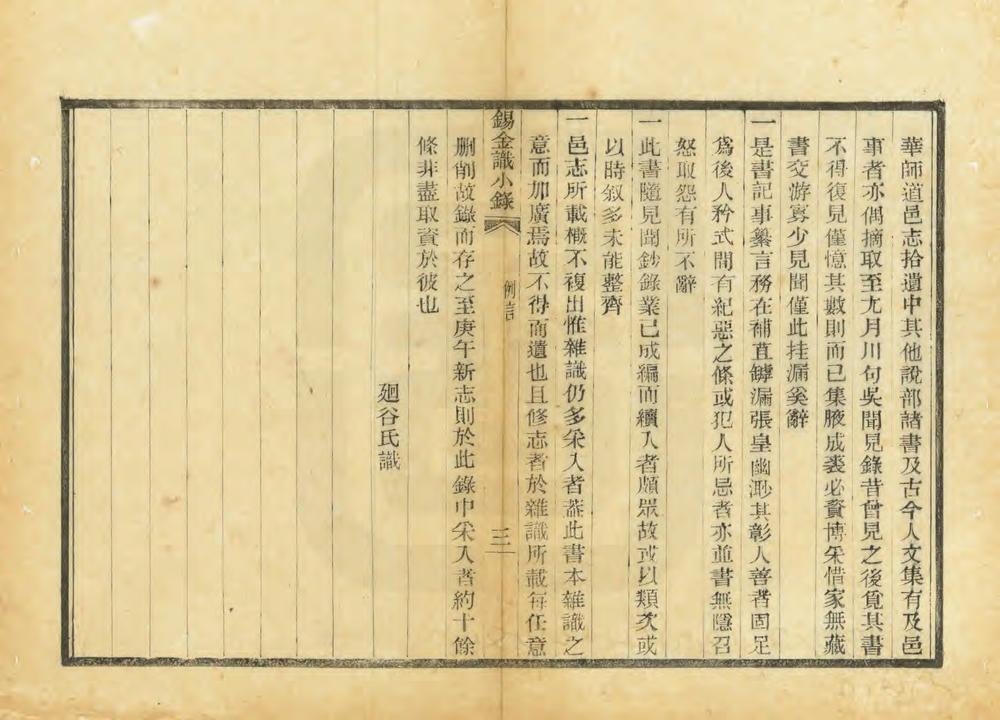 華師道邑志拾遺中其他說部諸書及古今人文集有及邑
事者亦偶摘取至尤月川句吳聞見錄昔曾見之後覓其書
不得復見僅憶其數則而已集腋成裘必資博采惜家無藏
書交游寡少見聞僅此挂漏奚辭
一是書記事纂言務在補苴罅漏張皇幽渺其彰人善者固足
爲後人矜式間有紀惡之條或犯人所忌者亦並書無隱召
怒取怨有所不辭
一此書隨見聞鈔錄業已成編而續入者頗眾故或以類次或
以時叙多未能整齊
一邑志所載槪不複出惟雜識仍多采入者葢此書本雜識之
意而加廣焉故不得而遺也且修志者於雜識所載每任意
錫金識小錄
例言
三
刪削故錄而存之至庚午新志則於此錄中采入者約十餘
條非盡取資於彼也
廻谷氏識